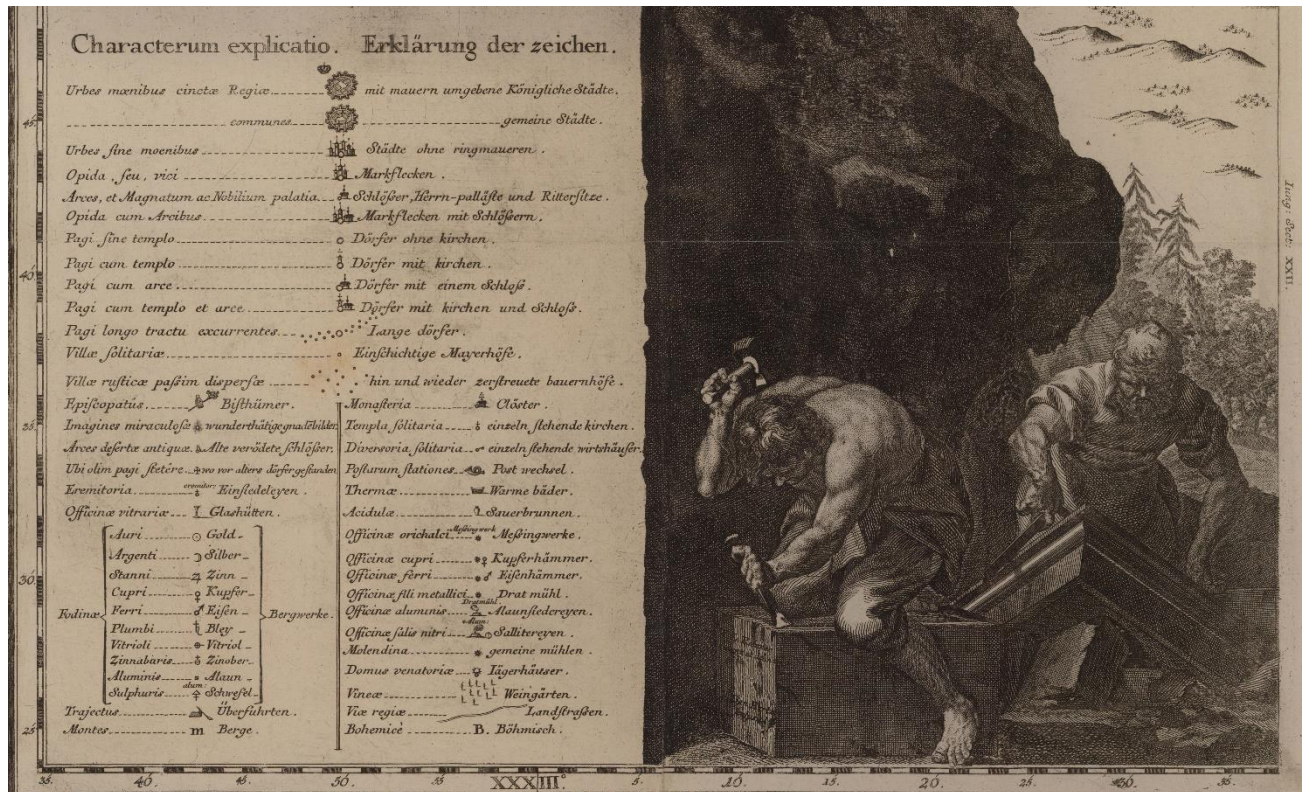 Characterum explicatio. Erklärung der zeichen.
Urbes mœnibus cinctæ Regiæ mit mauern umgebene Königliche Städte.
communes gemeine Städte.
Urbes ſine moenibus Städte ohne ringmaueren.
Opida, ſeu, vici Markflecken.
Arces, et Magnatum ac Nobilium palatia Schlöſſer, Herrn-palläſte und Ritterſitze.
Opida cum Arcibus Markflecken mit Schlöſſern.
Pagi ſine templo Dörfer ohne kirchen.
Pagi cum templo Dörfer mit kirchen.
Pagi cum arce Dörfer mit einem Schloſs.
Pagi cum templo et arce Dörfer mit kirchen und Schloſs.
Pagi longo tractu excurrentes Lange dörfer.
Villæ ſolitariæ Einſchichtige Mayerhöfe.
Villæ ruſticæ paſſim disperſæ hin und wieder zerſtreuete bauernhöfe.
Epiſcopatus Biſthümer.
Imagines miraculoſæ wunderthätige gnadẽbilder
Arces deſertæ antiquæ Alte verödete ſchlöſſer.
Ubi olim pagi ſtetére wo vor alters dörfer geſtanden
Eremitoria eremitor: Einſiedeleyen.
Officinæ vitrariæ Glashütten.
Fodinæ Bergwerke.
Auri Gold-
Argenti Silber-
Stanni Zinn-
Cupri Kupfer-
Ferri Eiſen-
Plumbi Bley-
Vitrioli Vitriol-
Zinnabaris Zinober-
Aluminis Alaun-
Sulphuris alum: Schwefel-
Trajectus Überfuhrten.
Montes m Berge.
Monaſteria Clöſter.
Templa ſolitaria einzeln ſtehende kirchen.
Diverſoria ſolitaria einzeln ſtehende wirtshäuſer.
Poſtarum ſtationes Poſt wechſel.
Thermæ Warme bäder.
Acidulæ Sauerbrunnen.
Officinæ orichalci Meſſingwerk Meſſingwerke.
Officinæ cupri Kupferhämmer.
Officinæ ferri Eiſenhämmer.
Officinæ fili metallici Drat mühl.
Dratmühl.
Officinæ aluminis Alaunſiedereyen.
Alum:
Officinæ ſalis nitri Sallitereyen.
Molendina gemeine mühlen.
Domus venatoriæ Jägerhäuser.
Vineæ Weingärten.
Viæ regiæ Landſtraſſen.
Bohemicè B. Böhmisch.
Iung: Sect: XXII.
45.
40.
35.
30.
25.
35. 40. 45. 50. 55. XXXIII° 5. 10. 15. 20. 25. 30. 35.